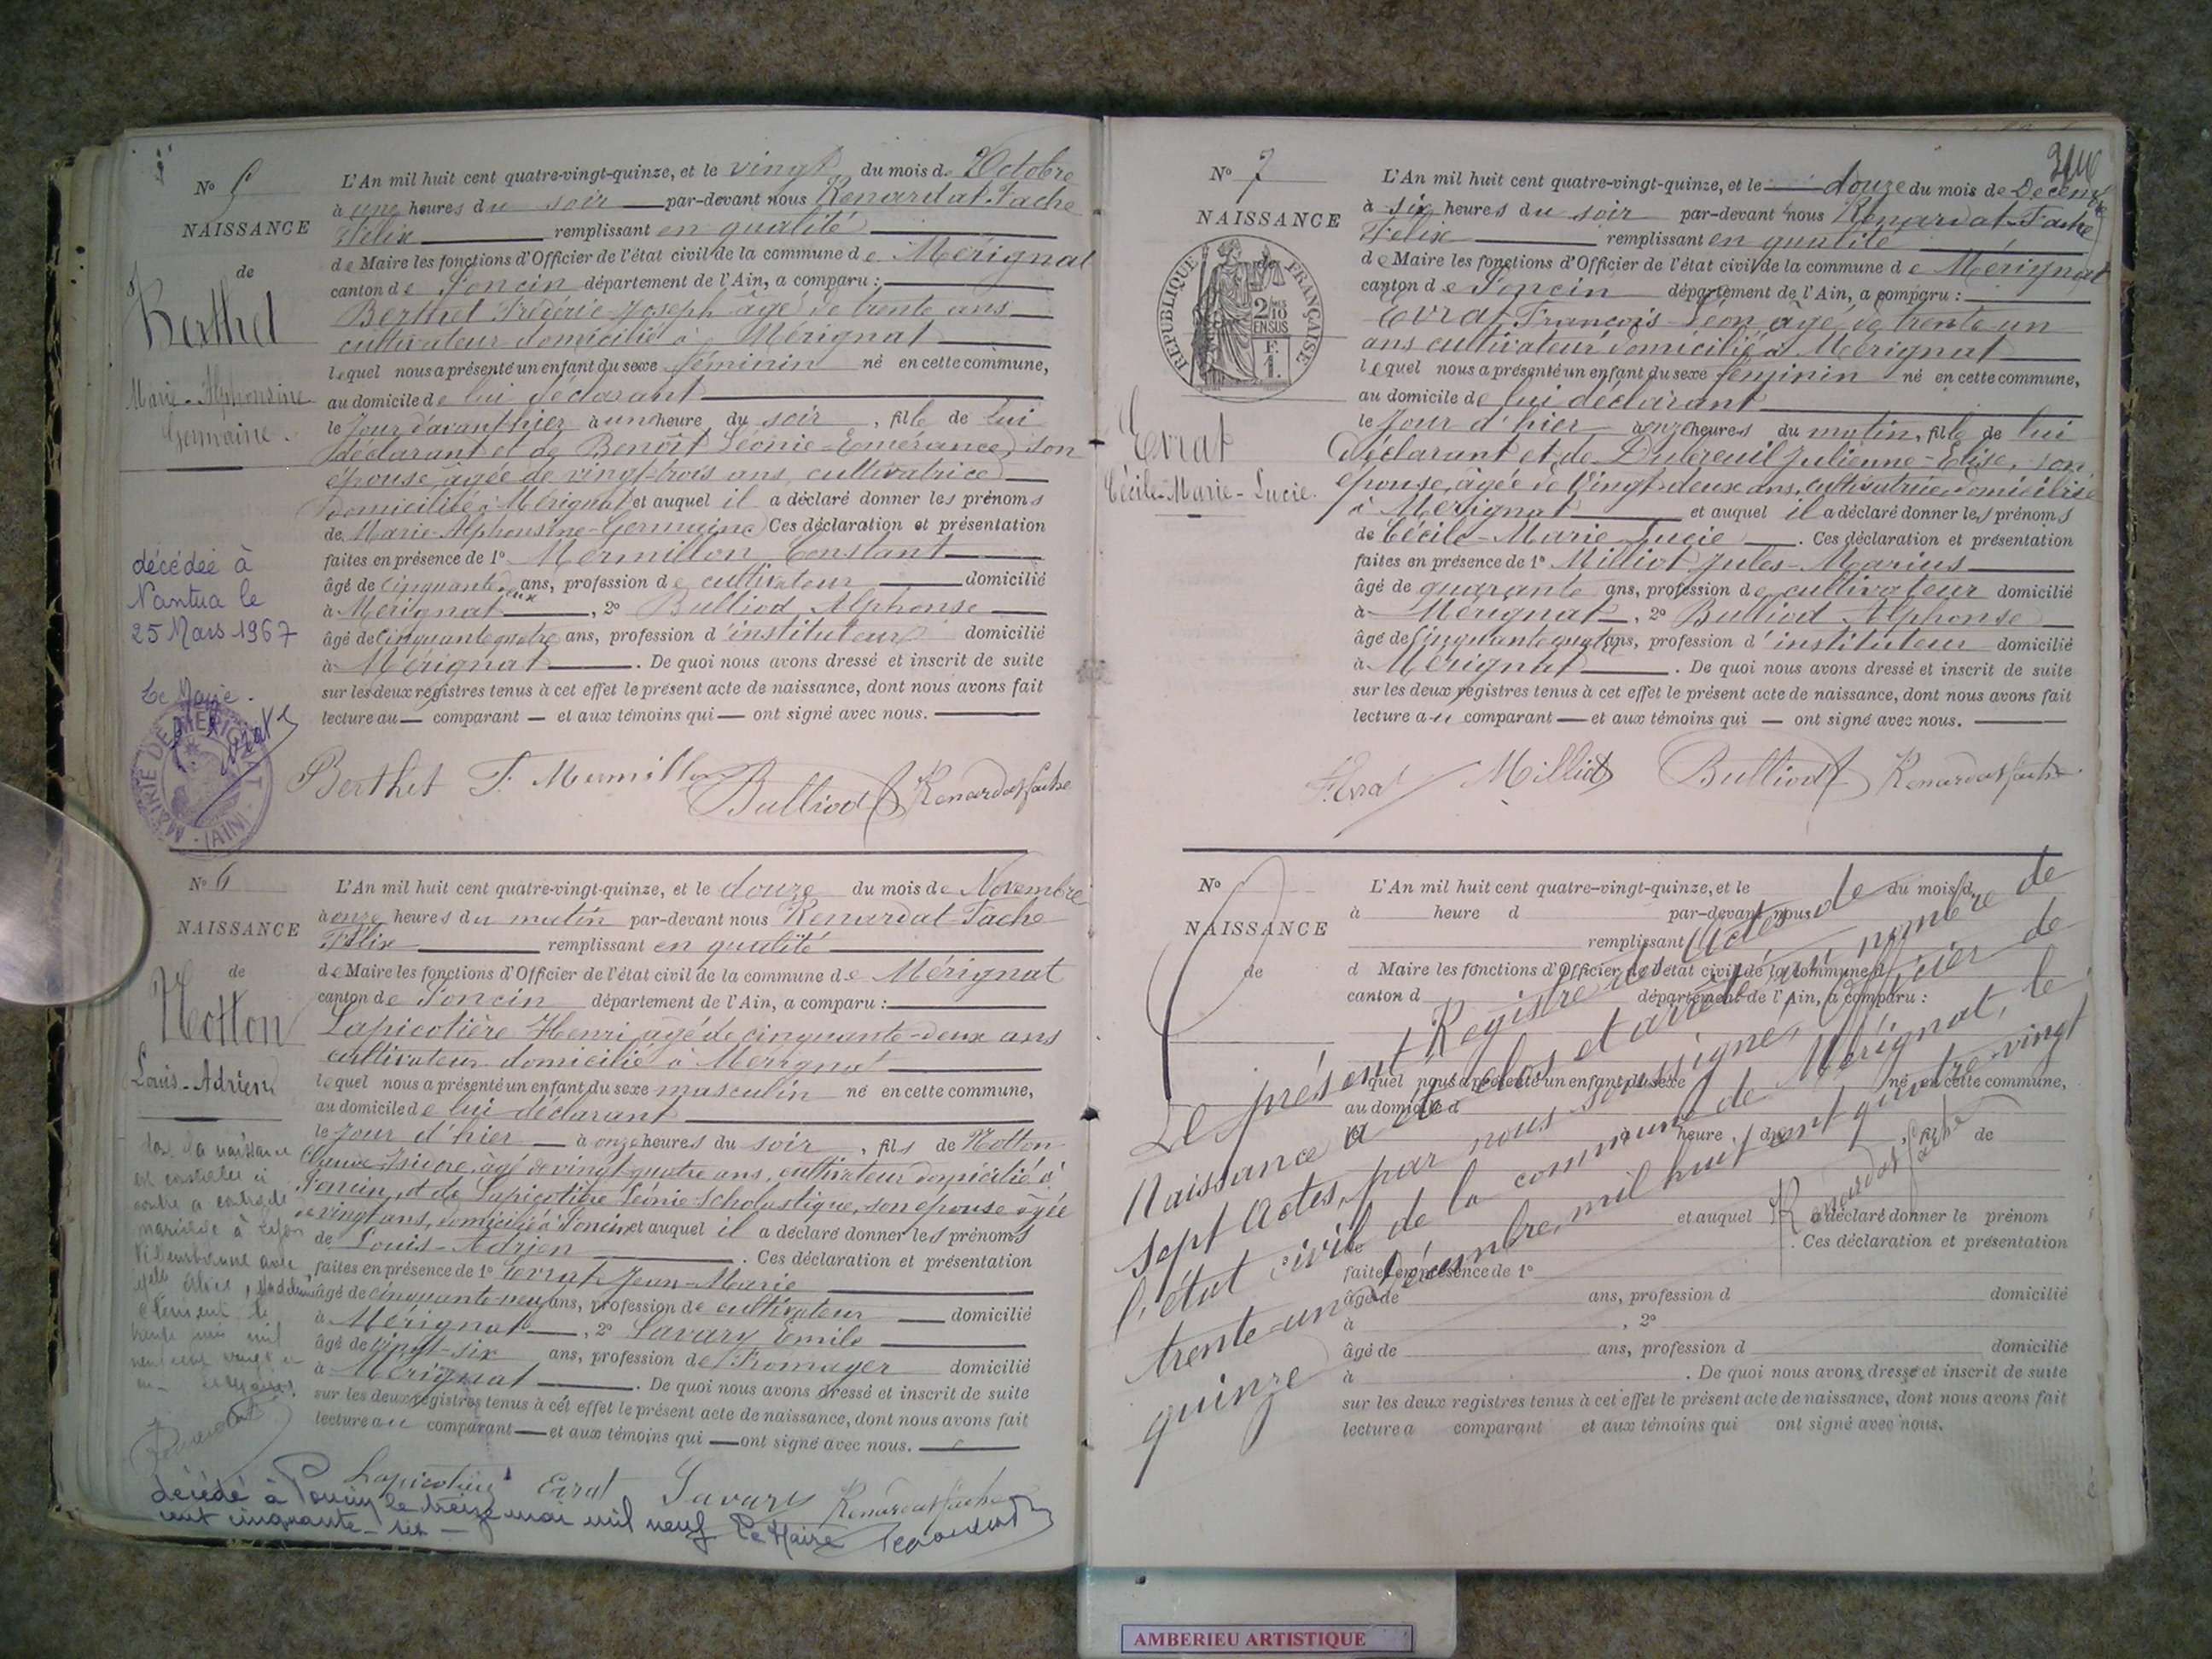 N° 5
NAISSANCE
de
Berthet
Marie-Alphonsine-
Germaine.
décédée à
Nantua le
25 Mars 1967
Le Maire.
MAIRIE DE MERIGNAT (AIN)
L'An mil huit cent quatre-vingt-quinze, et le vingt du mois de Octobre
à une heures du soir par-devant nous Renardat-Fache
Félix remplissant en qualité
de Maire les fonctions d'Officier de l'état civil de la commune de Mérignat
canton de Poncin département de l'Ain, a comparu :
Berthet Frédéric Joseph âgé de trente ans
cultivateur domicilié à Mérignat
lequel nous a présenté un enfant du sexe féminin né en cette commune,
au domicile de lui déclarant
le Jour d'avant hier à un heure du soir, fille de lui
déclarant et de Benoît Léonie-Emérance, son
épouse, âgée de vingt-trois ans, cultivatrice
domiciliée à Mérignat et auquel il a déclaré donner les prénoms
de Marie-Alphonsine-Germaine Ces déclaration et présentation
faites en présence de 1° Mermillon, Constant
âgé de cinquante ans, profession de cultivateur domicilié
à Mérignat, 2° Bulliod, Alphonse
âgé de cinquante quatre ans, profession d'instituteur domicilié
à Mérignat. De quoi nous avons dressé et inscrit de suite
sur les deux registres tenus à cet effet le présent acte de naissance, dont nous avons fait
lecture au — comparant — et aux témoins qui — ont signé avec nous.
Berthet F. Mermillon Bulliod Renardat fache
N° 6
NAISSANCE
de
Hotton
Louis-Adrien
L'An mil huit cent quatre-vingt-quinze, et le douze du mois de Novembre
à onze heures du matin par-devant nous Renardat-Fache
Félix remplissant en qualité
de Maire les fonctions d'Officier de l'état civil de la commune de Mérignat
canton de Poncin département de l'Ain, a comparu :
Lapicotière Henri âgé de cinquante-deux ans
cultivateur domicilié à Mérignat
lequel nous a présenté un enfant du sexe masculin né en cette commune,
au domicile de lui déclarant
le Jour d'hier à onze heures du soir, fils de Hotton
Isidore, âgé de vingt quatre ans, cultivateur domicilié à
Poncin, et de Lapicotière Léonie-Scholastique, son épouse âgée
de vingt ans, domiciliée à Poncin et auquel il a déclaré donner les prénoms
de Louis-Adrien. Ces déclaration et présentation
faites en présence de 1° Evrat Jean-Marie
âgé de cinquante-neuf ans, profession de cultivateur domicilié
à Mérignat, 2° Savary Emile
âgé de vingt-six ans, profession de Fromager domicilié
à Mérignat. De quoi nous avons dressé et inscrit de suite
sur les deux registres tenus à cet effet le présent acte de naissance, dont nous avons fait
lecture au comparant — et aux témoins qui — ont signé avec nous.
Lapicotière Evrat Savary Renardat fache
décédé à Poncin le treize mai mil neuf
cent cinquante-six — Le Maire
N° 7
NAISSANCE
de
REPUBLIQUE FRANÇAISE
2/10
EN SUS
F.
1.
Evrat
Cécile-Marie-Lucie.
L'An mil huit cent quatre-vingt-quinze, et le douze du mois de Décembre
à six heures du soir par-devant nous Renardat-Fache
Félix remplissant en qualité
de Maire les fonctions d'Officier de l'état civil de la commune de Mérignat
canton de Poncin département de l'Ain, a comparu :
Evrat François-Léon, âgé de trente un
ans cultivateur domicilié à Mérignat
lequel nous a présenté un enfant du sexe féminin né en cette commune,
au domicile de lui déclarant
le Jour d'hier à onze heures du matin, fille de lui
déclarant et de Dubreuil Julienne-Elise, son
épouse, âgée de Vingt-deux ans, cultivatrice domiciliée
à Mérignat et auquel il a déclaré donner les prénoms
de Cécile-Marie-Lucie. Ces déclaration et présentation
faites en présence de 1° Milliot Jules-Marius
âgé de quarante ans, profession de cultivateur domicilié
à Mérignat, 2° Bulliod Alphonse
âgé de cinquante quatre ans, profession d'instituteur domicilié
à Mérignat. De quoi nous avons dressé et inscrit de suite
sur les deux registres tenus à cet effet le présent acte de naissance, dont nous avons fait
lecture au comparant — et aux témoins qui — ont signé avec nous.
F. Evrat Milliot Bulliod Renardat fache
N°
NAISSANCE
de
L'An mil huit cent quatre-vingt-quinze, et le du mois d
à heure d par-devant nous
remplissant
d Maire les fonctions d'Officier de l'état civil de la commune d
canton d département de l'Ain, a comparu :
quel nous a présenté un enfant du sexe né en cette commune,
au domicile d
le à heure d , fil de
et auquel a déclaré donner le prénom
de . Ces déclaration et présentation
faites en présence de 1°
âgé de ans, profession d domicilié
à , 2°
âgé de ans, profession d domicilié
à . De quoi nous avons dressé et inscrit de suite
sur les deux registres tenus à cet effet le présent acte de naissance, dont nous avons fait
lecture a comparant et aux témoins qui ont signé avec nous.
Le présent Registre des Actes de
Naissance a été clos et arrêté au nombre de
sept Actes, par nous soussigné, Officier de
l'état civil de la commune de Mérignat, le
trente-un Décembre, mil huit cent quatre-vingt
quinze
Renardat fache
AMBERIEU ARTISTIQUE